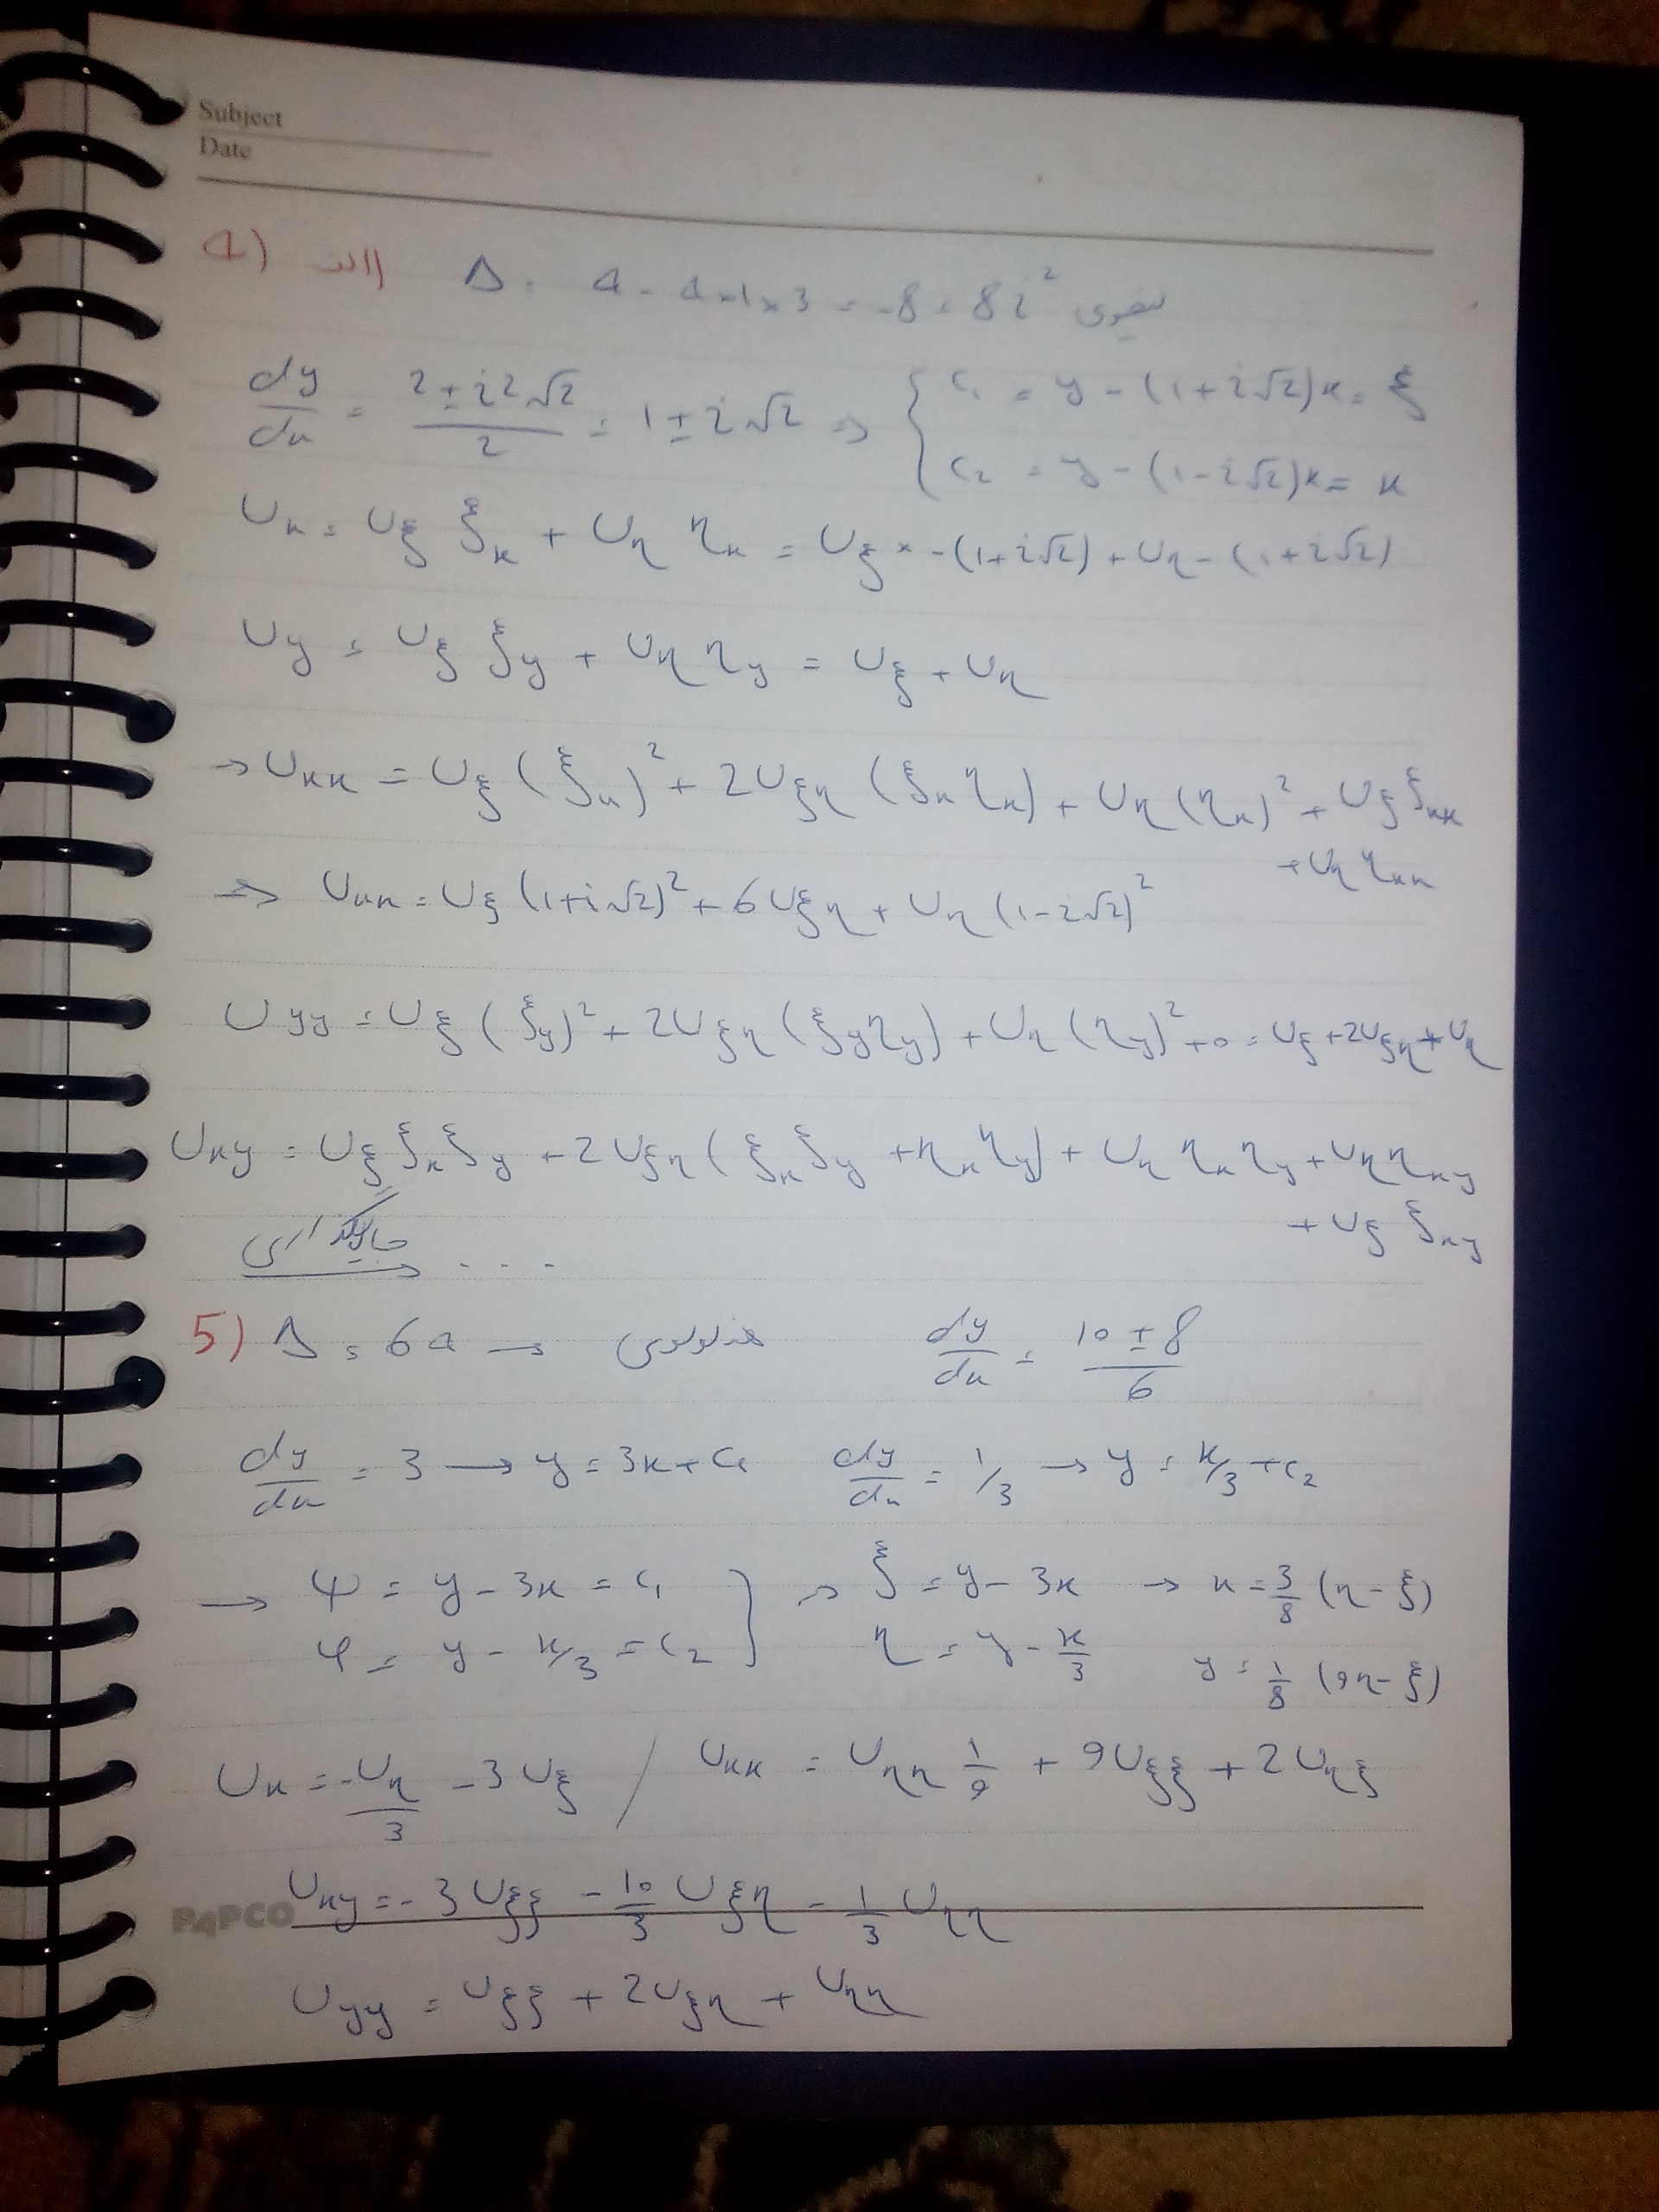 Subject
Date
4) الف) Δ = 4 - 4×1×3 = -8 = 8i² بیضوی
dy/dx = (2 ± i2√2)/2 = 1 ± i√2 ⇒ { c₁ = y - (1+i√2)x = ξ
c₂ = y - (1-i√2)x = x
Ux = Uξ ξx + Uη ηx = Uξ × -(1+i√2) + Uη - (1+i√2)
Uy = Uξ ξy + Uη ηy = Uξ + Uη
→ Uxx = Uξ (ξx)² + 2Uξη (ξx ηx) + Uη (ηx)² + Uξ ξxx
+ Uη ηxx
⇒ Uxx = Uξ (1+i√2)² + 6Uξη + Uη (1-i√2)²
Uyy = Uξ (ξy)² + 2Uξη (ξy ηy) + Uη (ηy)² + 0 = Uξ + 2Uξη + Uη
Uxy = Uξ ξx ξy + 2Uξη (ξx ξy + ηx ηy) + Uη ηx ηy + Uη ηxy
+ Uξ ξxy
جایگذاری → ...
5) Δ = 64 → هذلولوی dy/dx = (10 ± 8)/6
dy/dx = 3 → y = 3x + c₁ dy/dx = 1/3 → y = x/3 + c₂
→ ψ = y - 3x = c₁ } ⇒ ξ = y - 3x → x = 3/8 (η - ξ)
φ = y - x/3 = c₂ η = y - x/3 y = 1/8 (9η - ξ)
Ux = -Uη/3 - 3Uξ / Uxx = Uηη 1/9 + 9Uξξ + 2Uηξ
Uxy = -3Uξξ - 10/3 Uξη - 1/3 Uηη
PAPCO
Uyy = Uξξ + 2Uξη + Uηη